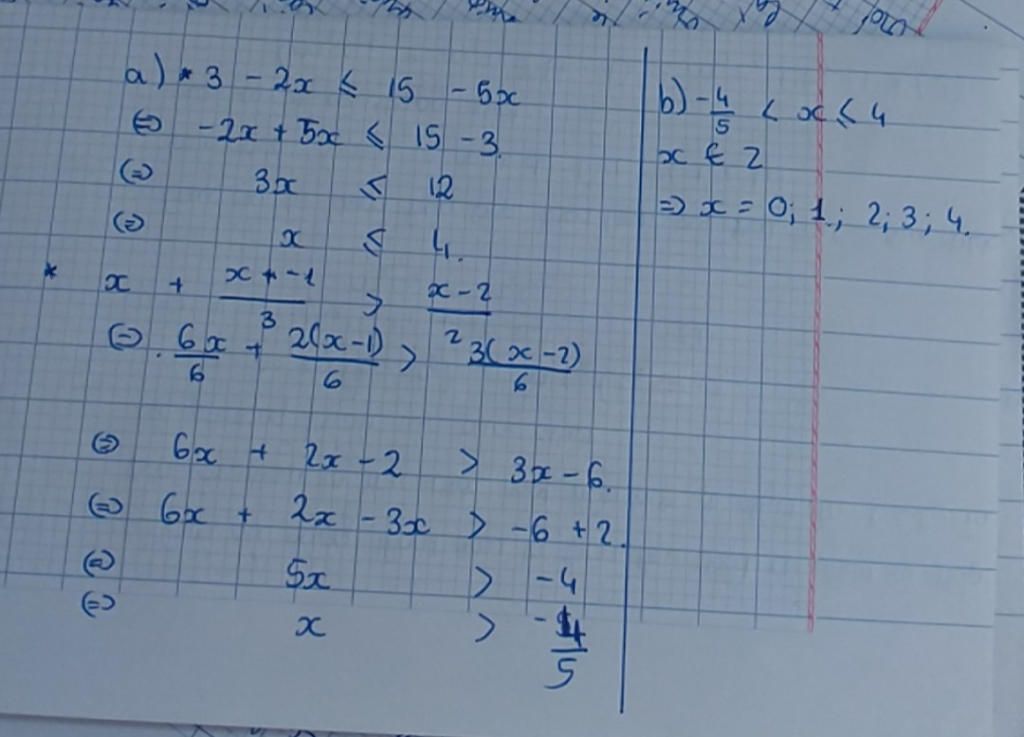 a) * 3 - 2x ≤ 15 - 5x
⇔ -2x + 5x ≤ 15 - 3
⇔ 3x ≤ 12
⇔ x ≤ 4.
* x + (x - 1)/3 > (x - 2)/2
⇔ 6x/6 + 2(x - 1)/6 > 3(x - 2)/6
⇔ 6x + 2x - 2 > 3x - 6.
⇔ 6x + 2x - 3x > -6 + 2.
⇔ 5x > -4
⇔ x > -4/5
b) -4/5 < x ≤ 4
x ∈ Z
=> x = 0; 1; 2; 3; 4.